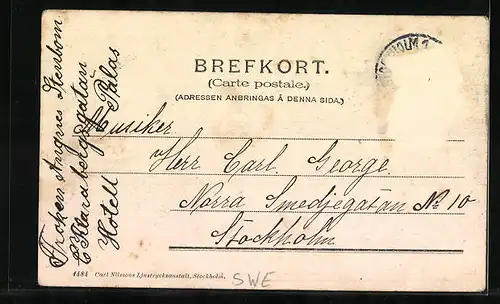 BREFKORT.
(Carte postale.)
(ADRESSEN ANBRINGAS Å DENNA SIDA.)
STOCKHOLM 1
Musiker
Herr Carl George
Norra Smedjegatan No 10
Stockholm
Fröken Angnes Stenbom
Klarabergsgatan
Hotell Palas
1484 Carl Nilssons Ljustrycksanstalt, Stockholm.
SWE